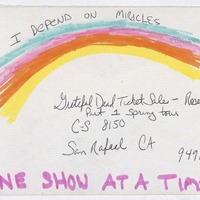 I DEPEND ON MIRICLES
Grateful Dead Ticket Sales - Rese
Part 1 Spring tour
C-S 8150
San Rafael CA
949
NE SHOW AT A TIM